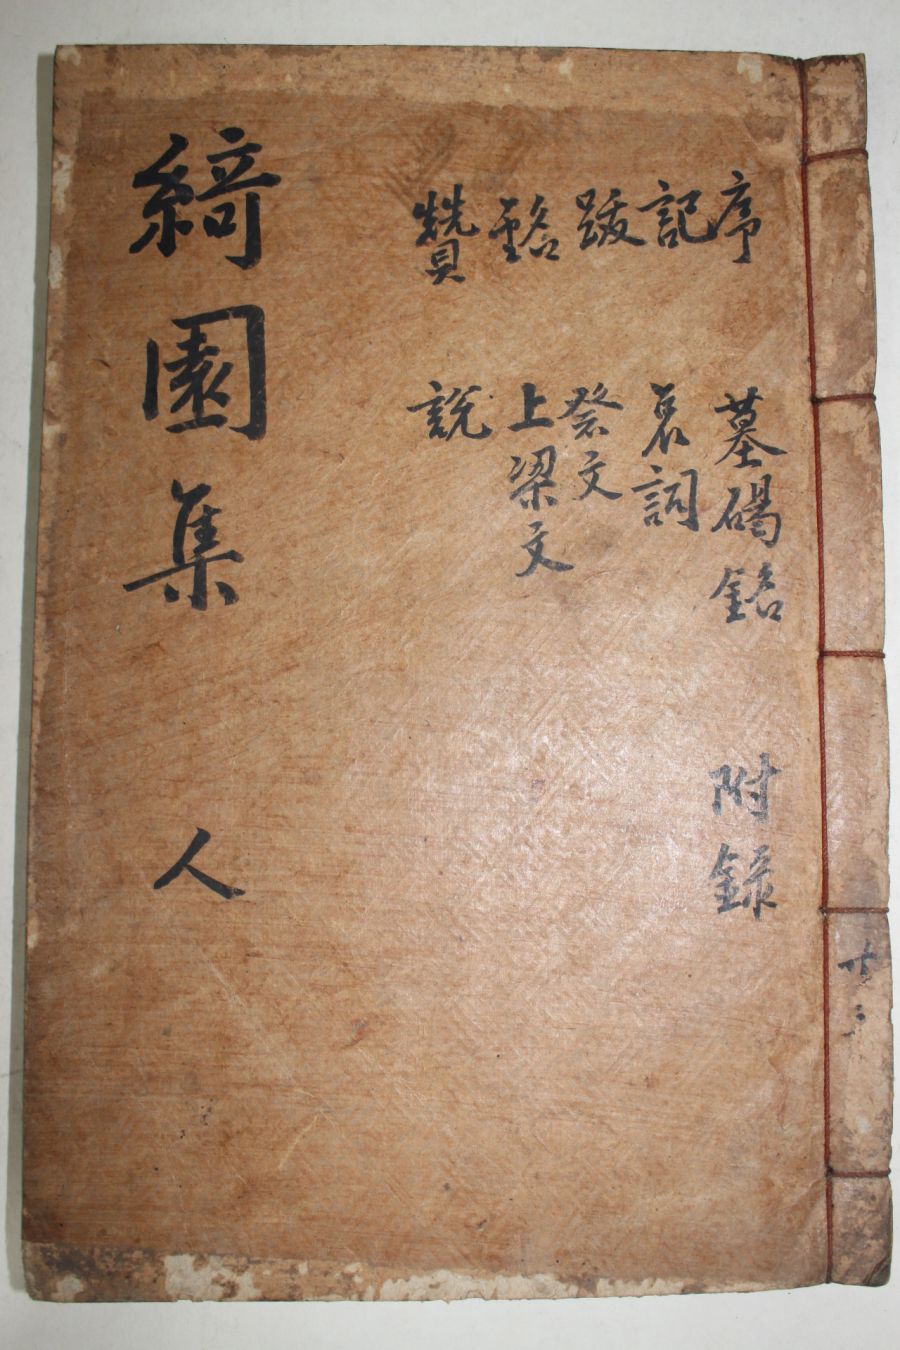 序
記
跋
銘
贊
墓碣銘
哀詞
祭文
上梁文
說
附錄
綺園集 人